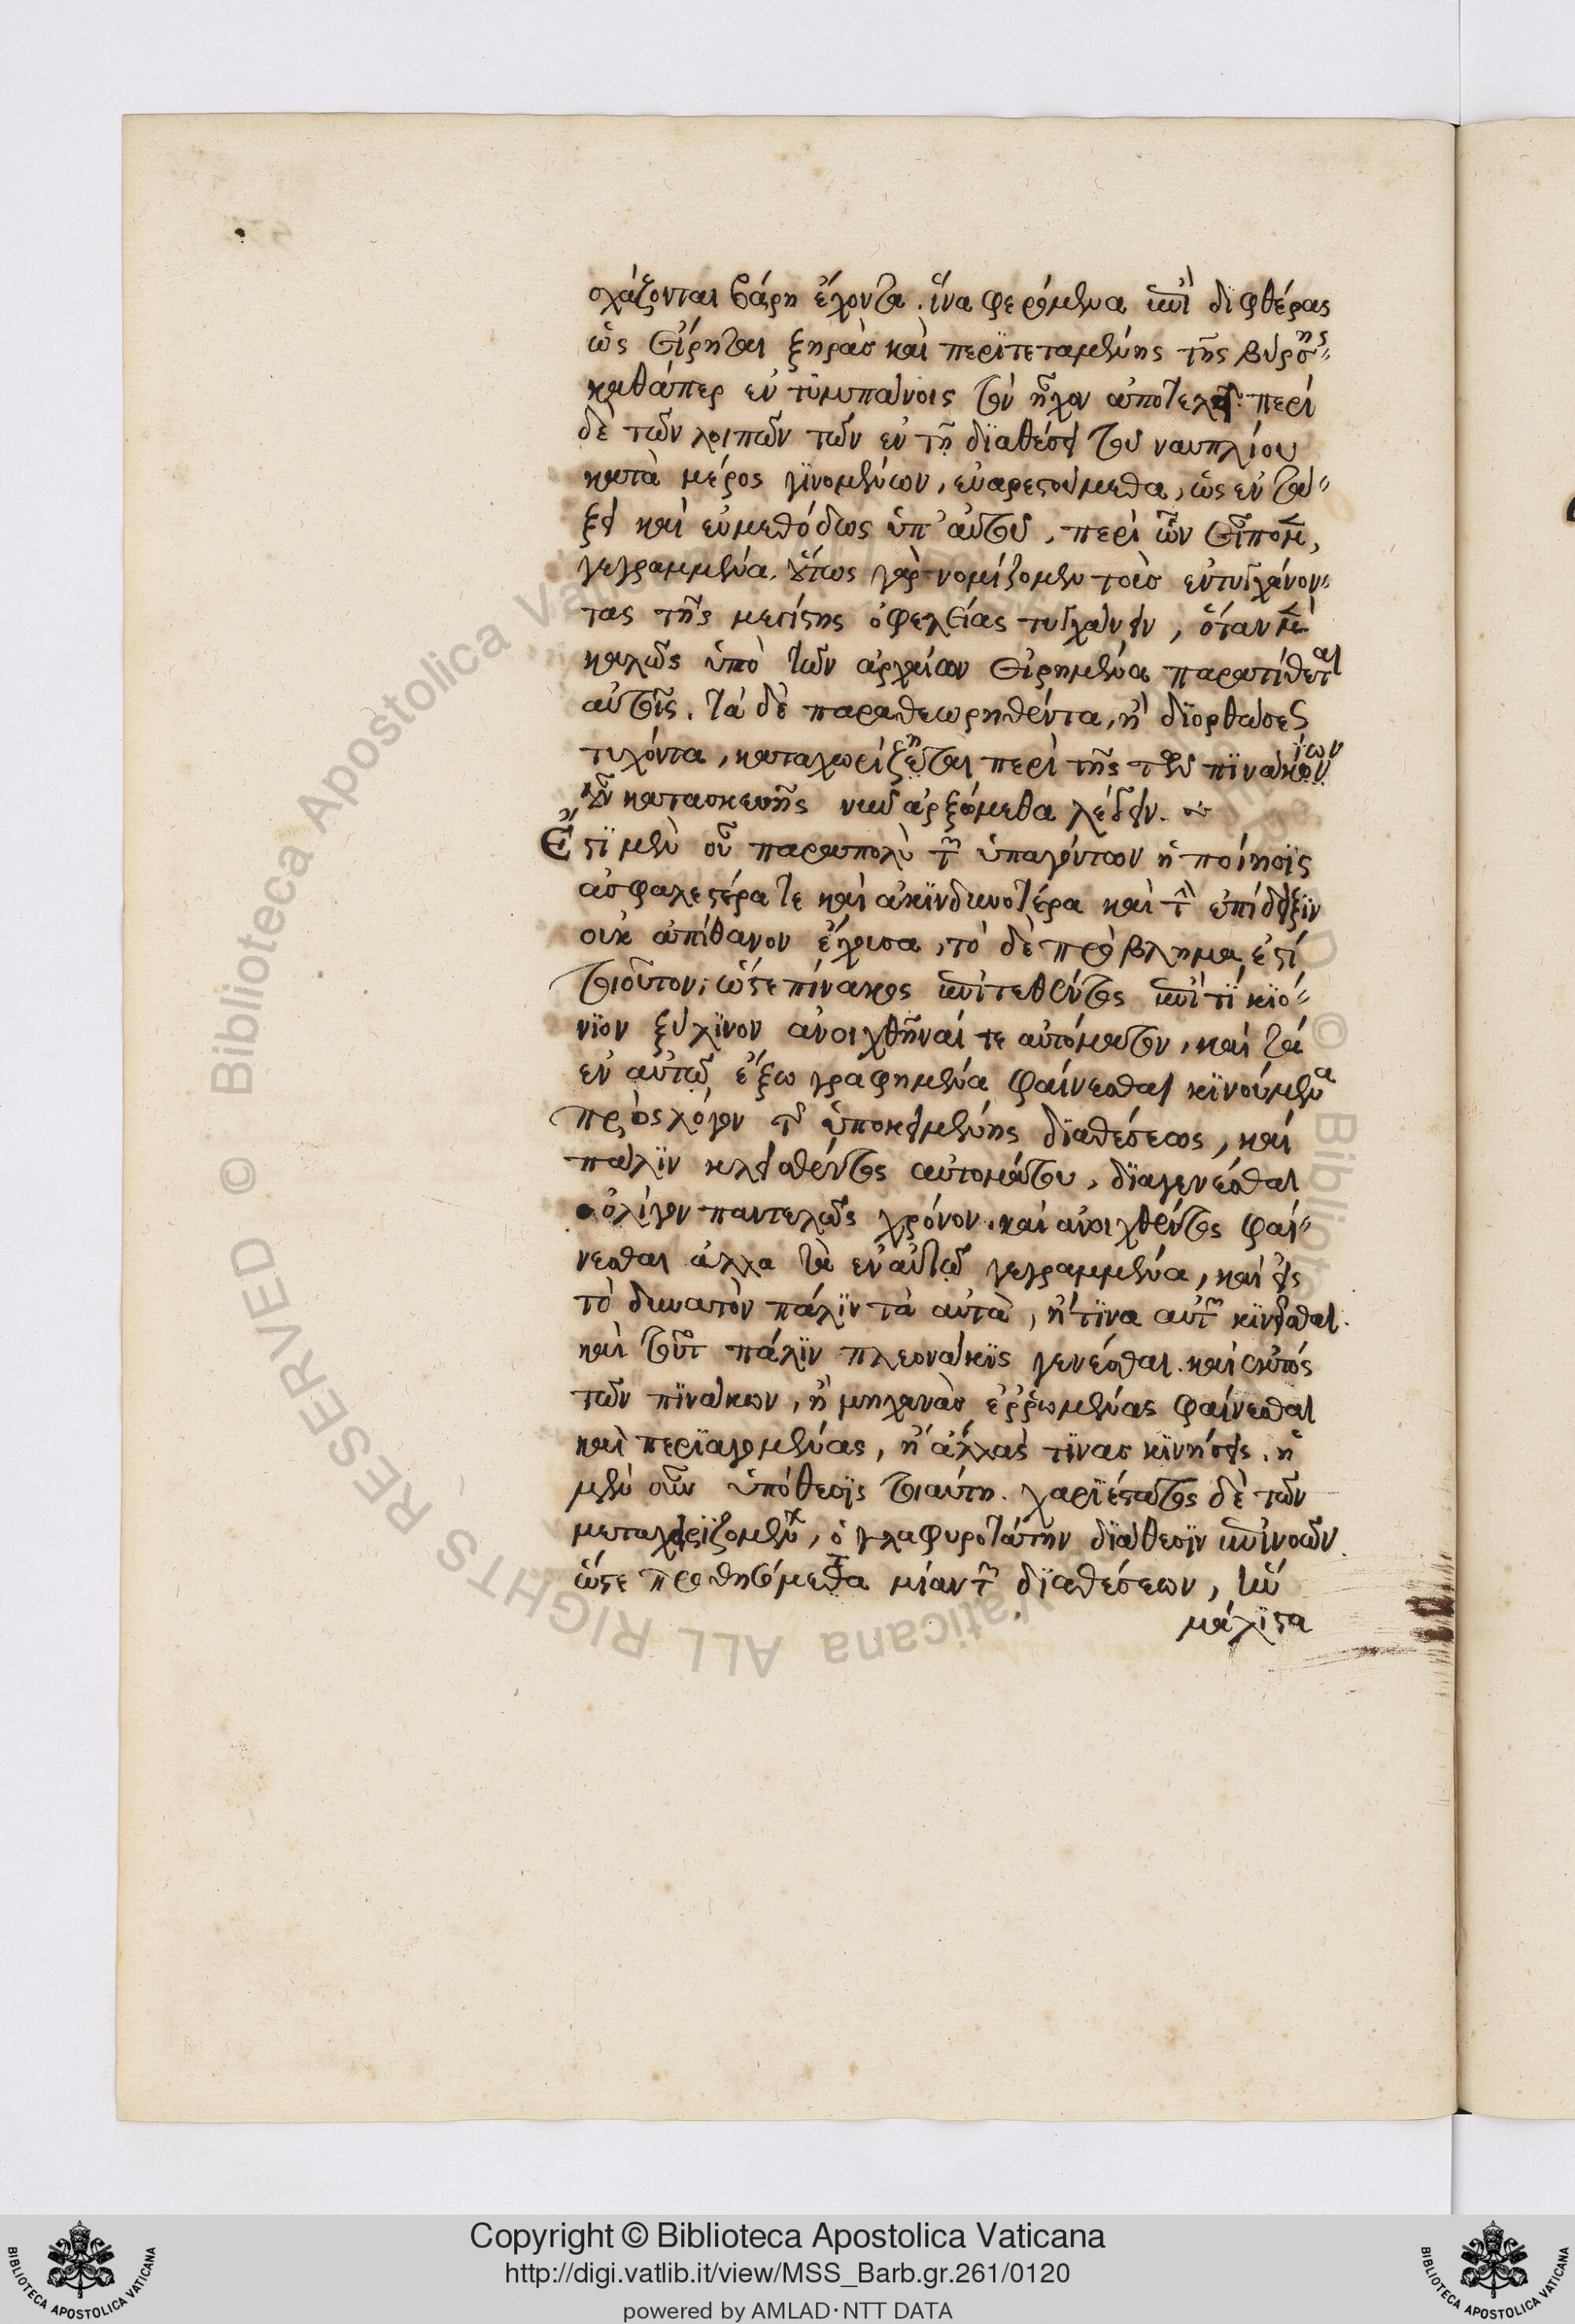 σχάζονται βάρη ἔχοντα. ἵνα φερόμενα ἐπὶ διφθέρας
ὡς εἴρηται ξηρᾶσ καὶ περϊτεταμένης τῆς βύρσης
καθάπερ ἐν τυμπάνοις τὸν ἦχον ἀποτελεῖ. περὶ
δὲ τῶν λοιπῶν τῶν ἐν τῇ δϊαθέσει τοῦ ναυπλίου
κατὰ μέρος γϊνομένων, εὐαρεστούμεθα, ὡς ἐν τά-
ξει καὶ εὐμεθόδως ὑπ' αὐτοῦ, περὶ ὧν εἴπομεν,
γεγραμμένα. οὕτως γὰρ νομίζομεν τοὺσ ἐντυγχάνον-
τας τῆς μεγίστης ὀφελείας τυγχάνειν, ὅταν μὲν
καλῶς ὑπὸ τῶν ἀρχαίων εἰρημένα παρατίθεται
αὐτοῖς. τὰ δὲ παραθεωρηθέντα, ἢ διορθώσεως
τυχόντα, καταχωρίζηται περὶ τῆς τῶν πϊνακίων
οὖν κατασκευῆς νῦν ἀρξόμεθα λέγειν.
Ἔστϊ μὲν οὖν παραπολὺ τῶν ὑπαγόντων ἡ ποίησϊς
ἀσφαλεστέρα τε καὶ ἀκϊνδυνοτέρα καὶ τὴν ἐπίδειξϊν
οὐκ ἀπίθανον ἔχουσα, τὸ δὲ πρόβλημα ἐστὶ
τοιοῦτον, ὥστε πίνακος ἐπιτεθέντος ἐπί τϊ κϊό-
νϊον ξύλϊνον ἀνοιχθῆναί τε αὐτόματον, καὶ τὰ
ἐν αὐτῷ ἔξω γραφημένα φαίνεσθαι κϊνούμενα
πρὸς λόγον τῆς ὑποκειμένης δϊαθέσεως, καὶ
πάλϊν κλεισθέντος αὐτομάτου, δϊαγενέσθαι
ὀλίγον παντελῶς χρόνον. καὶ ἀνοιχθέντος φαί-
νεσθαι ἄλλα τὰ ἐν αὐτῷ γεγραμμένα, καὶ εἰς
τὸ δυνατὸν πάλϊν τὰ αὐτὰ, ἤ τϊνα αὐτῶν κϊνεῖσθαι.
καὶ τοῦτο πάλϊν πλεονάκϊς γενέσθαι. καὶ ἐκτός
τῶν πϊνάκων, ἢ μηχανὰσ ἐῤῥωμένας φαίνεσθαι
καὶ περϊαγομένας, ἢ ἄλλας τϊνασ κϊνήσεις. ἡ
μὲν οὖν ὑπόθεσϊς τοιαύτη. χαρϊέστατος δὲ τῶν
μεταχειρϊζομένων, ὁ γλαφυροτάτην δϊάθεσϊν ἐπινοῶν.
ὥστε προθησόμεθα μίαν τῶν δϊαθέσεων, ἣν
μάλϊστα
Copyright © Biblioteca Apostolica Vaticana
http://digi.vatlib.it/view/MSS_Barb.gr.261/0120
powered by AMLAD·NTT DATA